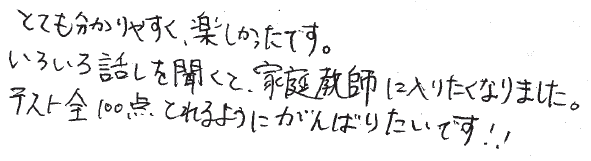 とても分かりやすく、楽しかったです。
いろいろ話しを聞くて、家庭教師に入りたくなりました。
テスト全100点とれるようにがんばりたいです!!